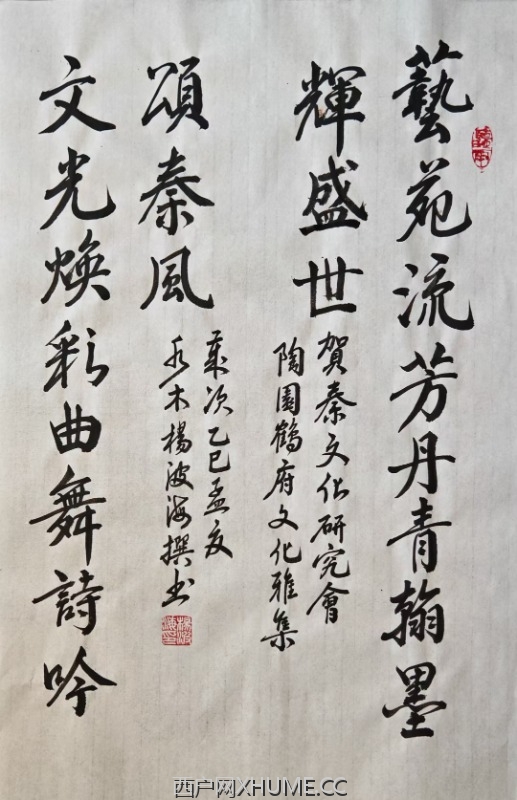 藝苑流芳丹青翰墨
輝盛世
賀秦文化研究會
陶園鶴府文化雅集
文光焕彩曲舞詩吟
頌秦風
歲次乙巳孟夏
水木楊波海撰书
西户网XHUME.CC